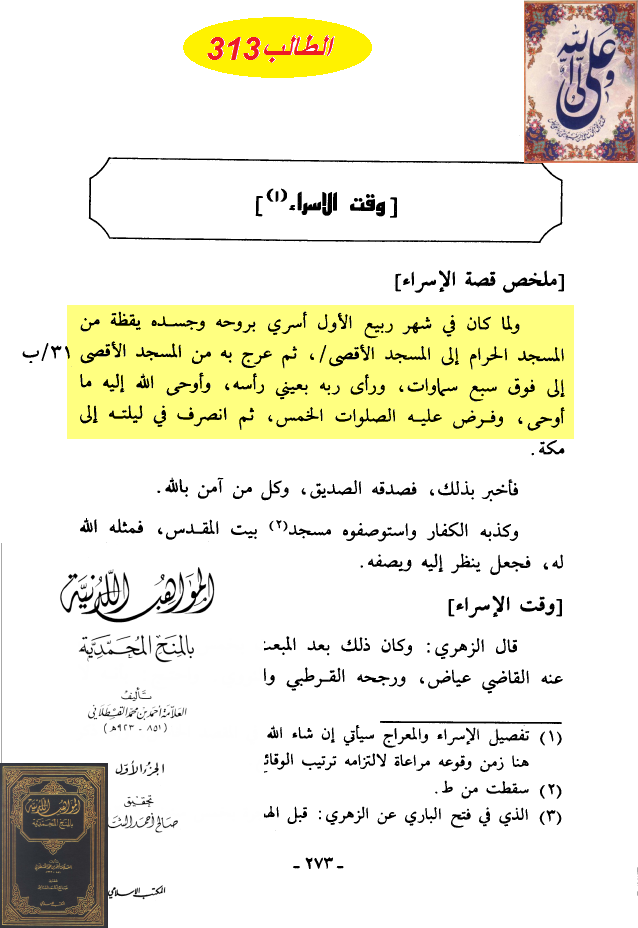 الطالب313
[وقت الإسراء(١)]
[ملخص قصة الإسراء]
ولما كان في شهر ربيع الأول أسري بروحه وجسده يقظة من
المسجد الحرام إلى المسجد الأقصى/، ثم عرج به من المسجد الأقصى ٣١/ب
إلى فوق سبع سماوات، ورأى ربه بعيني رأسه، وأوحى الله إليه ما
أوحى، وفرض عليه الصلوات الخمس، ثم انصرف في ليلته إلى
مكة.
فأخبر بذلك، فصدقه الصديق، وكل من آمن بالله.
وكذبه الكفار واستوصفوه مسجد(٢) بيت المقدس، فمثله الله
له، فجعل ينظر إليه ويصفه.
[وقت الإسراء]
قال الزهري: وكان ذلك بعد المبعث
عنه القاضي عياض، ورجحه القرطبي وا
(١) تفصيل الإسراء والمعراج سيأتي إن شاء الله
هنا زمن وقوعه مراعاة لالتزامه ترتيب الوقائع
(٢) سقطت من ط.
(٣) الذي في فتح الباري عن الزهري: قبل اله
- ٢٧٣ -
المواهب اللدنية
بالمنح المحمدية
تأليف
العلامة أحمد بن محمد القسطلاني
(٨٥١ - ٩٢٣ هـ)
الجزء الأول
تحقيق
صالح أحمد الشا
المكتب الإسلامي
المواهب اللدنية
بالمنح المحمدية